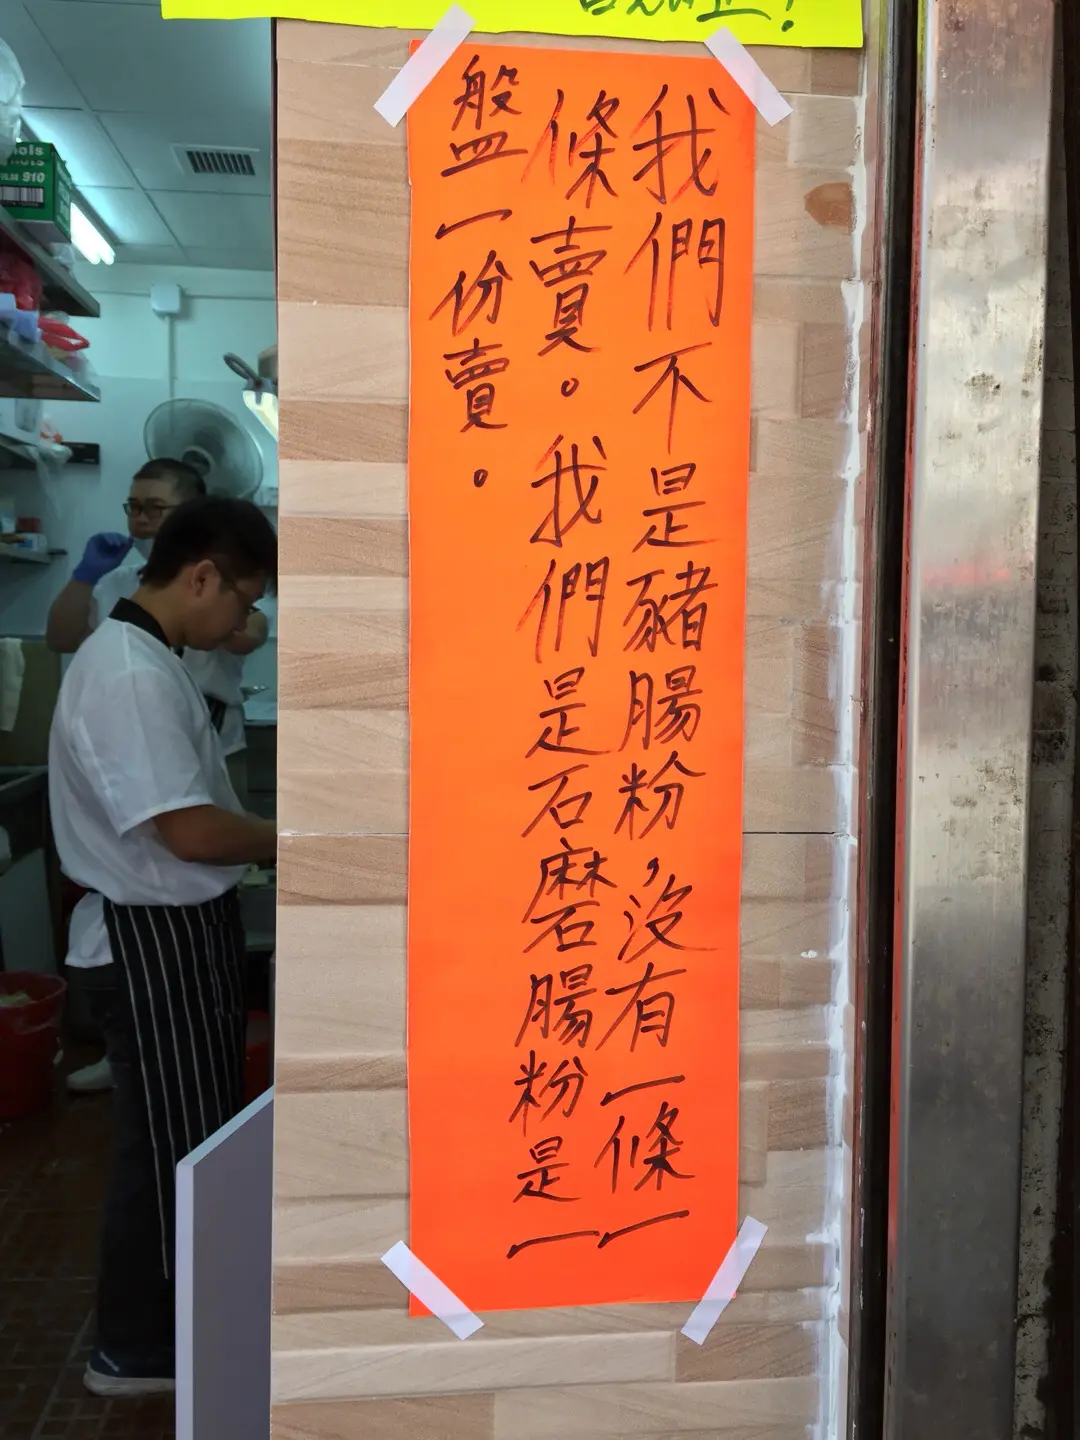 我們不是豬腸粉,沒有一條一
條賣。我們是石磨腸粉是一
盤一份賣。
910